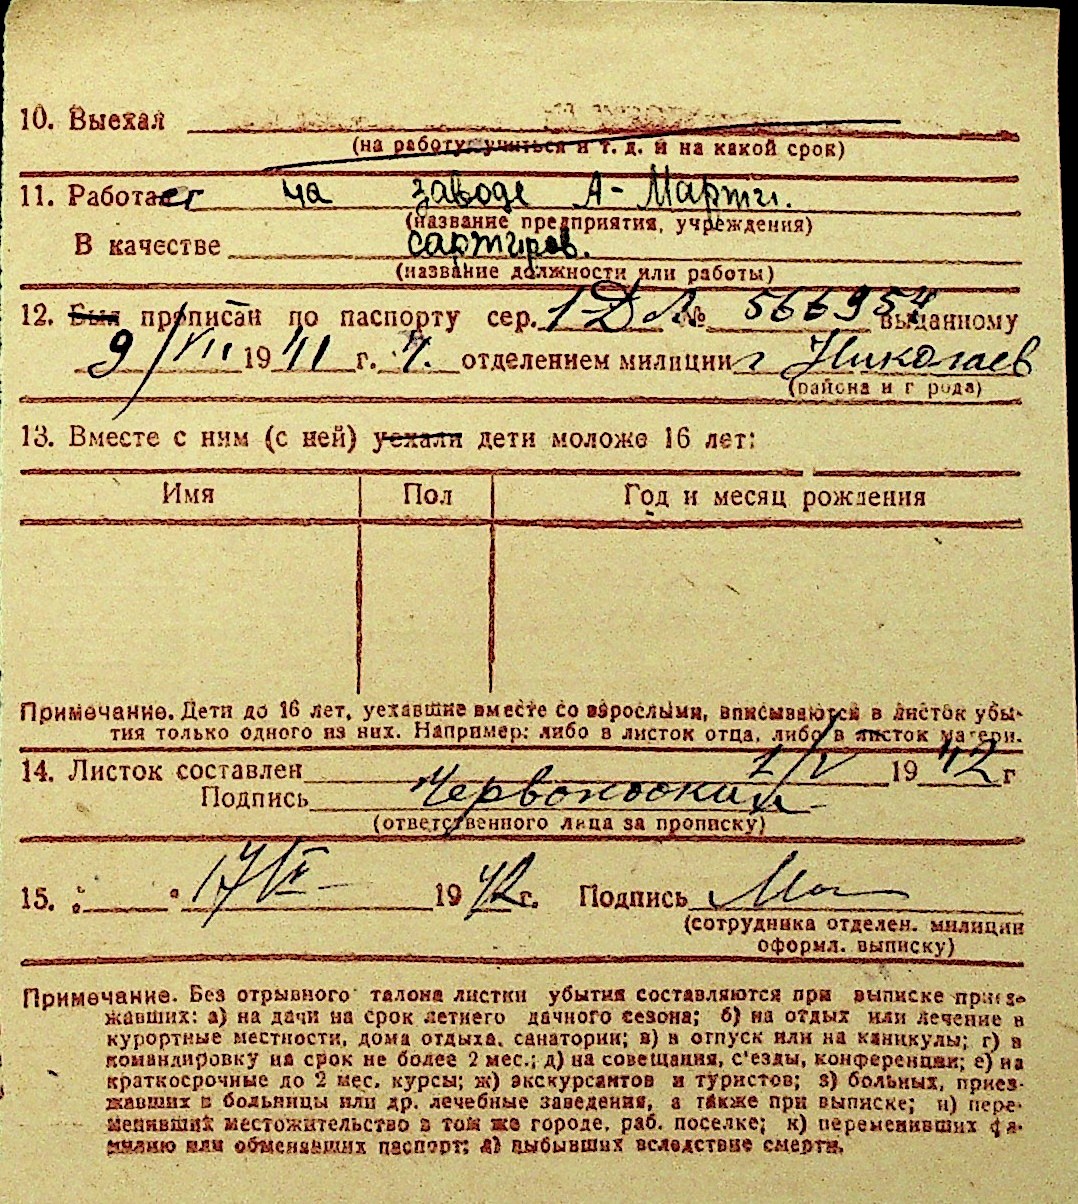 10. Выехал
(на работу учиться и т. д. и на какой срок)
11. Работает на заводе А-Марти.
(название предприятия, учреждения)
В качестве сартиров.
(название должности или работы)
12. Был прописан по паспорту сер. 1-Д Л № 566954 выданному
9/VII 1941 г. 4. отделением милиции г Николаев
(района и г рода)
13. Вместе с ним (с ней) уехали дети моложе 16 лет:
Имя Пол Год и месяц рождения
Примечание. Дети до 16 лет, уехавшие вместе со взрослыми, вписываются в листок убы-
тия только одного из них. Например: либо в листок отца, либо в листок матери.
14. Листок составлен 1/V 1942 г
Подпись
(ответственного лица за прописку)
15. 17/VI 1942 г. Подпись
(сотрудника отделен. милиции
оформл. выписку)
Примечание. Без отрывного талона листки убытия составляются при выписке приез-
жавших: а) на дачи на срок летнего дачного сезона; б) на отдых или лечение в
курортные местности, дома отдыха, санатории; в) в отпуск или на каникулы; г) в
командировку на срок не более 2 мес.; д) на совещания, с'езды, конференции; е) на
краткосрочные до 2 мес. курсы; ж) экскурсантов и туристов; з) больных, приез-
жавших в больницы или др. лечебные заведения, а также при выписке; и) пере-
менивших местожительство в том же городе, раб. поселке; к) переменивших фа-
милию или обменявших паспорт; л) выбывших вследствие смерти.